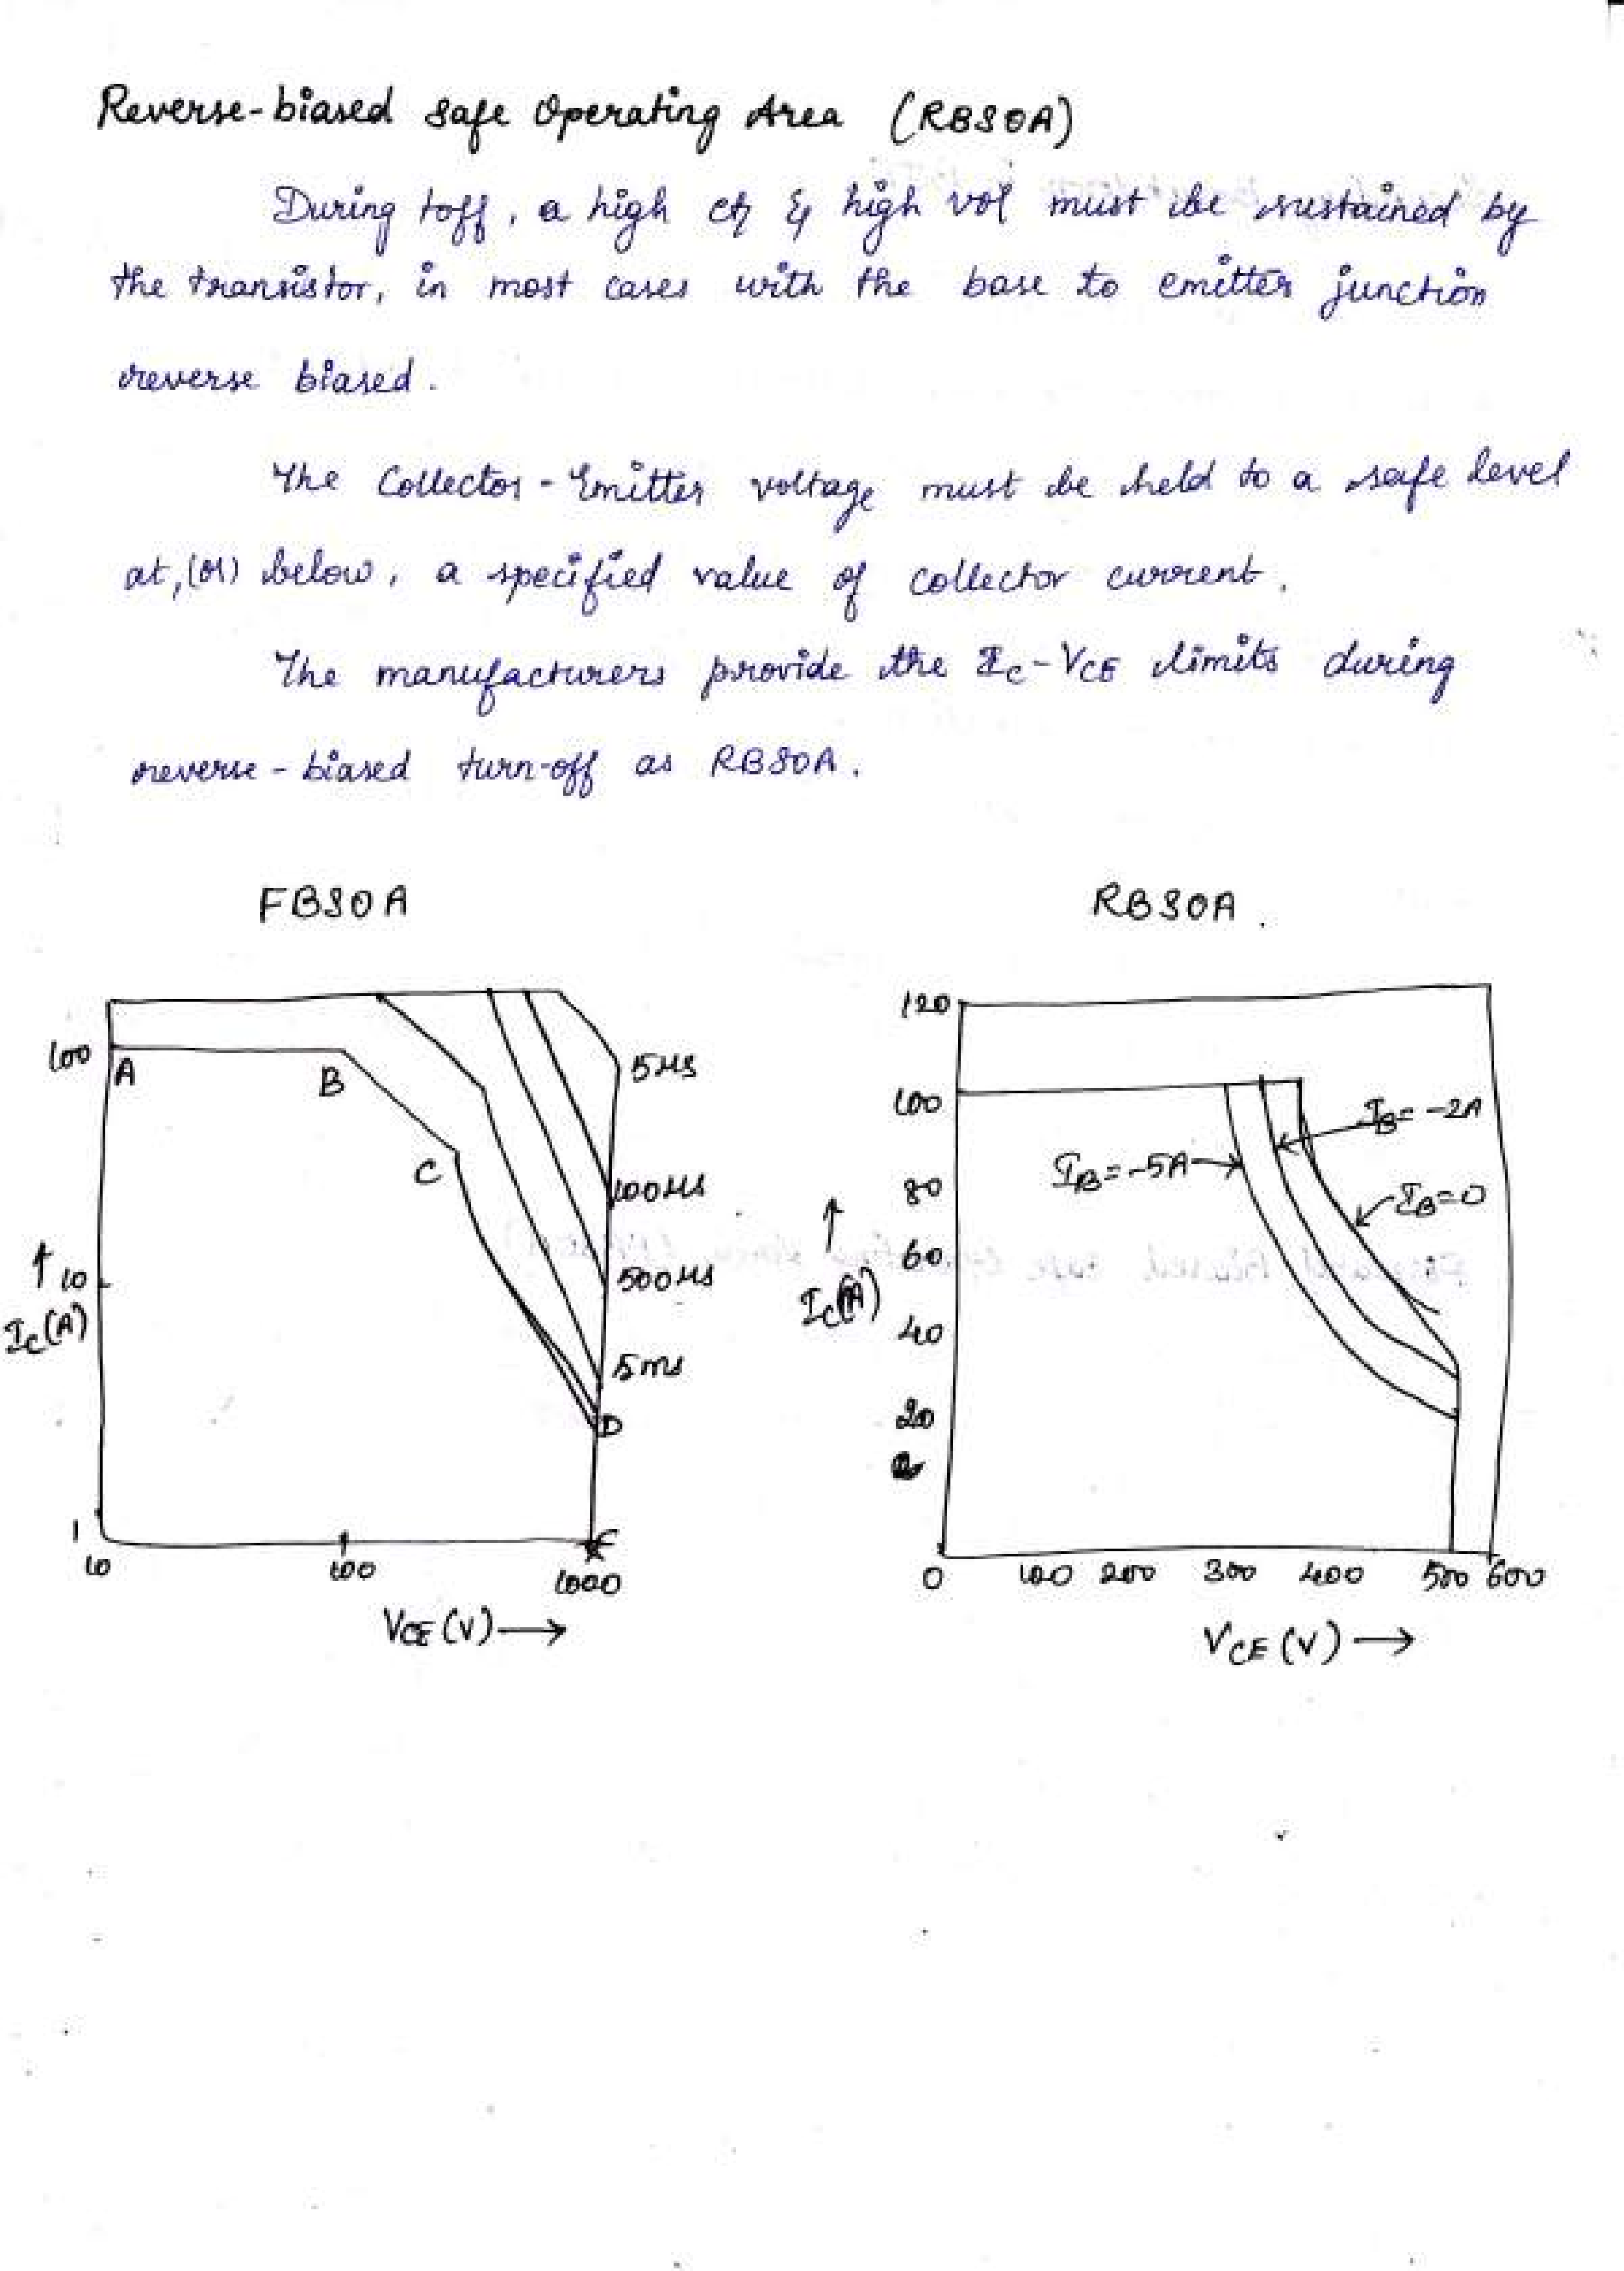 Reverse-biased Safe Operating Area (RBSOA)
During toff, a high ct & high vol must be sustained by
the transistor, in most cases with the base to emitter junction
reverse biased.
The Collector-Emitter voltage must be held to a safe level
at, (or) below, a specified value of collector current.
The manufacturers provide the IC-VCE limits during
reverse-biased turn-off as RBSOA.
FBSOA
100
A
B
C
D
E
5μs
100μs
500μs
5ms
↑ 10
IC(A)
1
10
100
1000
VCE (V) →
RBSOA.
120
100
80
60
40
20
↑
IC(A)
IB=-5A
IB=-2A
IB=0
0
100
200
300
400
500
600
VCE (V) →